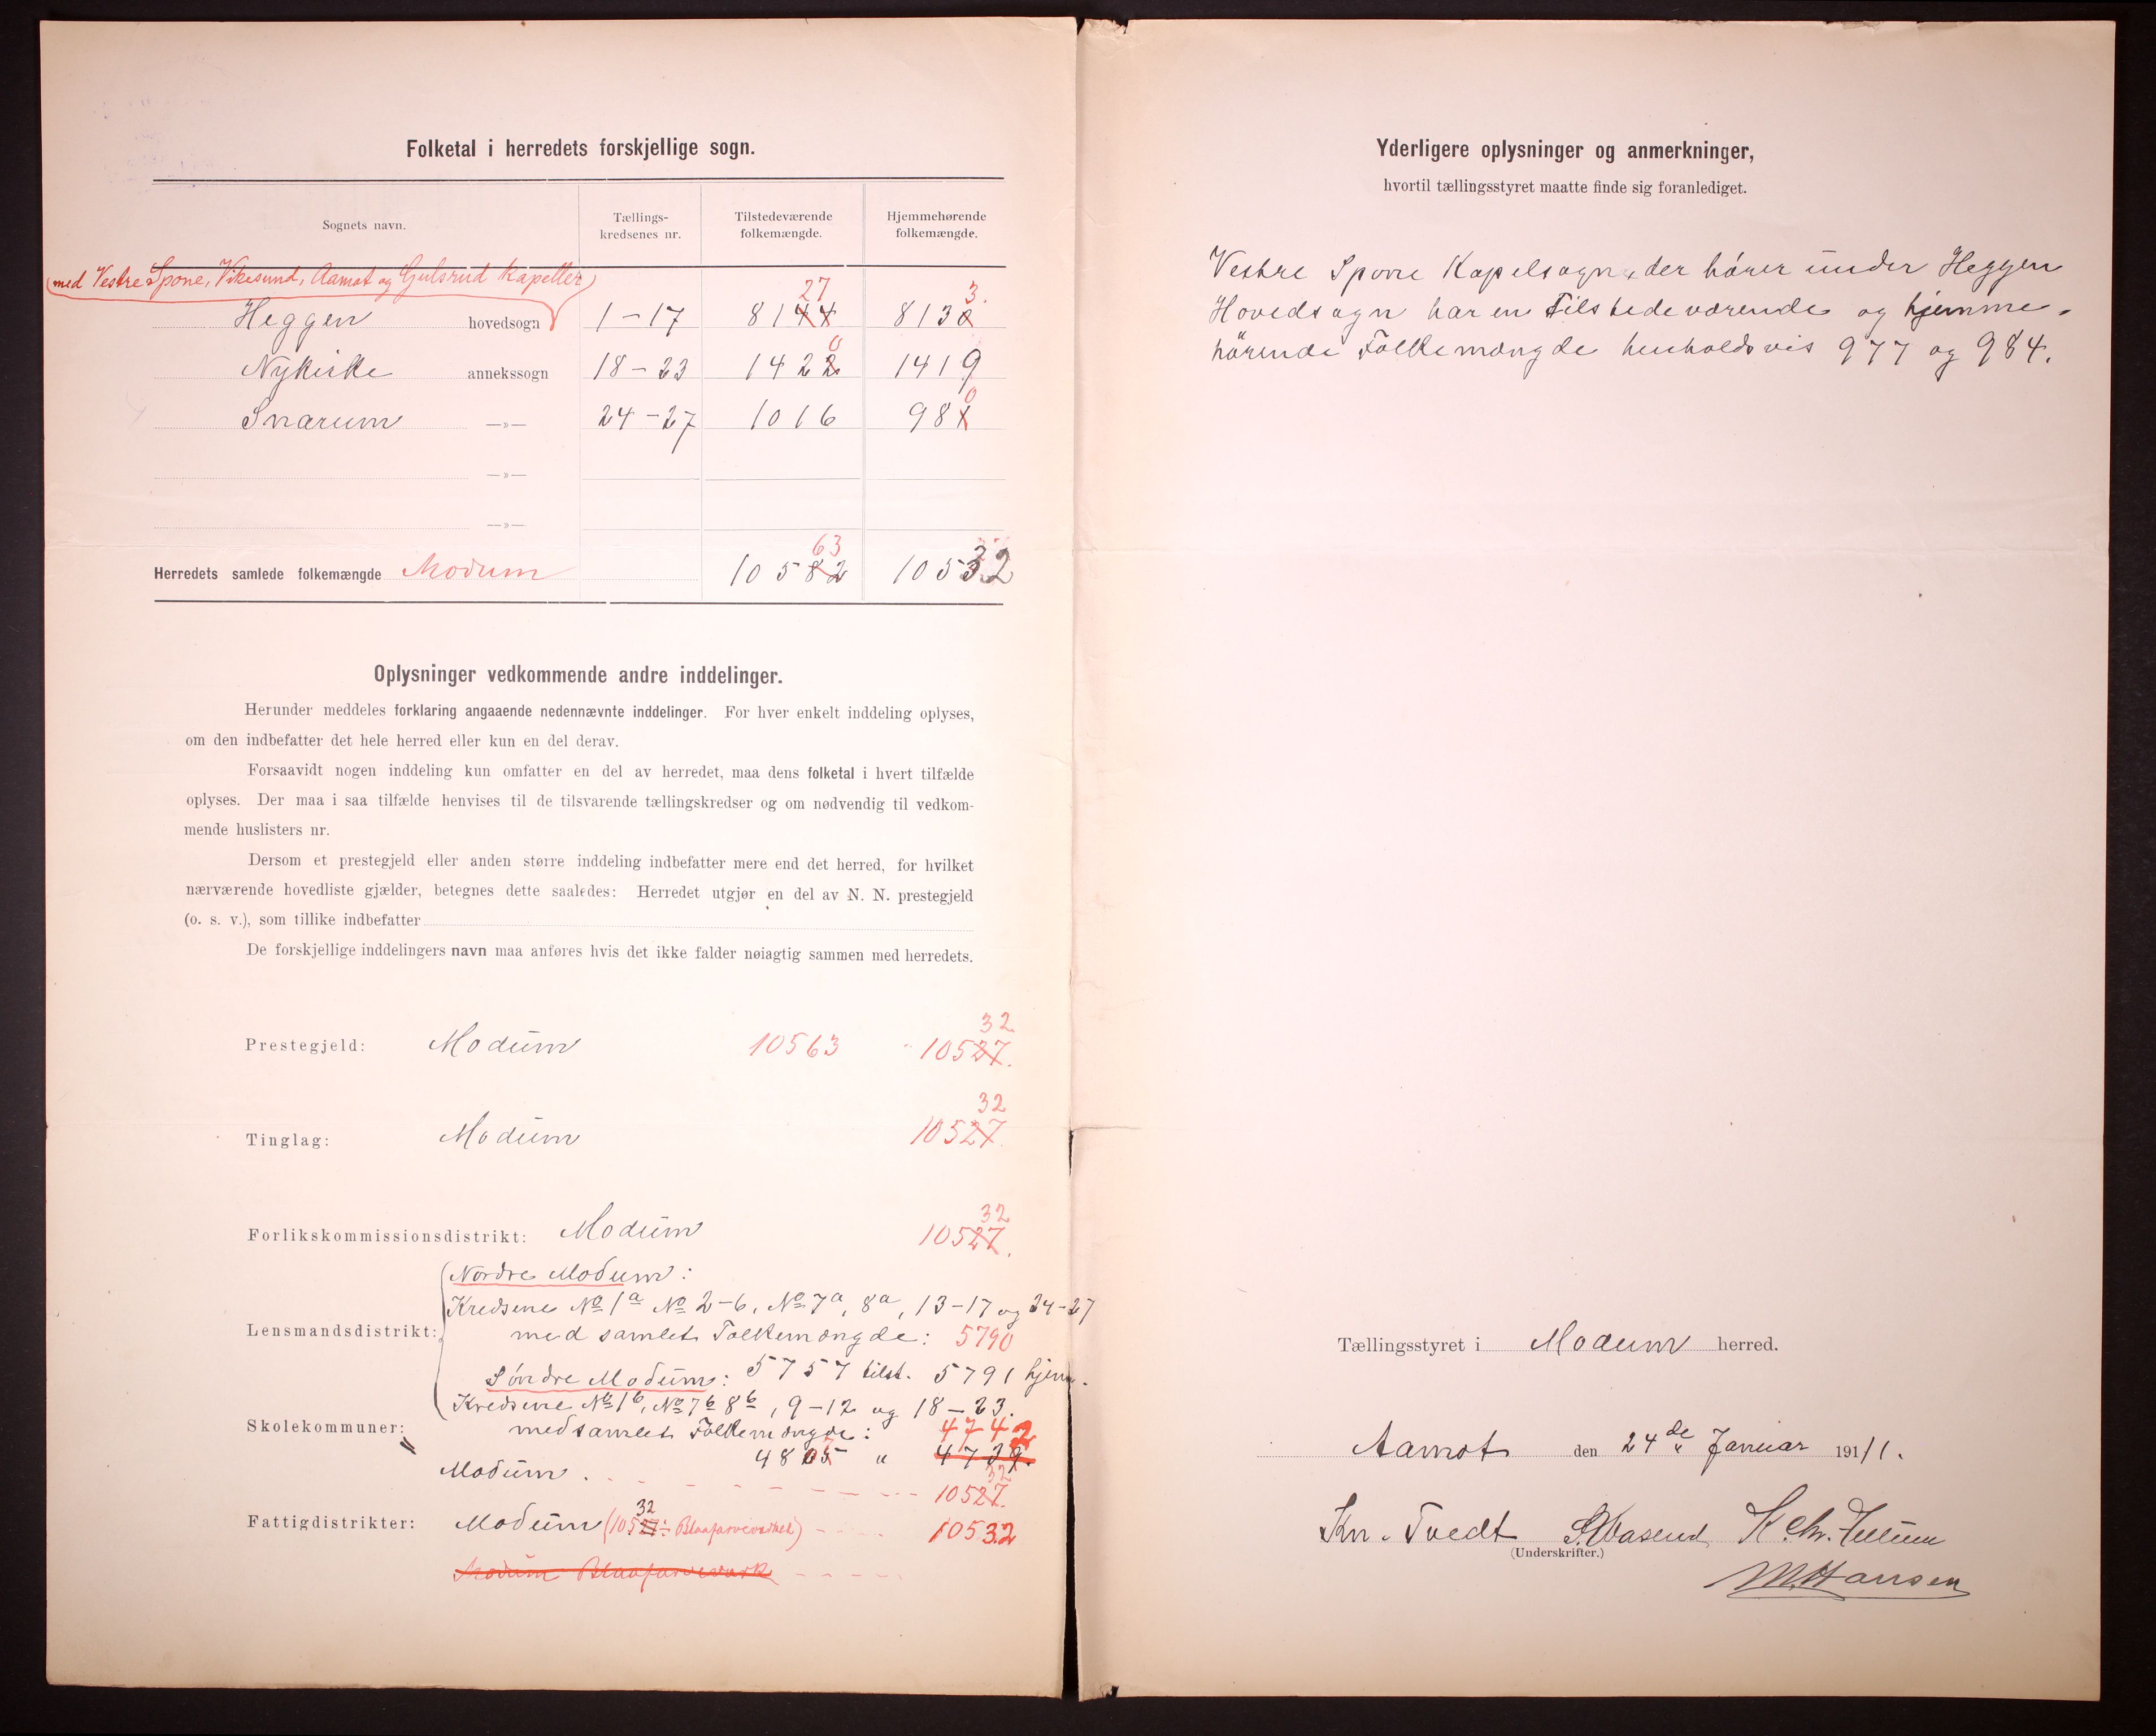 Folketal i herredets forskjellige sogn.
Sognets navn. Tællings-kredsenes nr. Tilstedeværende folkemængde. Hjemmehørende folkemængde.
(med Vestre Spone, Vikesund, Aamot og Gulsrud kapeller)
27 3.
Heggen hovedsogn 1-17 8144 8130
0
Nykirke annekssogn 18-23 1422 1419
0
Snarum —»— 24-27 1016 981
—»—
—»—
63
Herredets samlede folkemængde Modum 10582 10532
Oplysninger vedkommende andre inddelinger.
Herunder meddeles forklaring angaaende nedennævnte inddelinger. For hver enkelt inddeling oplyses,
om den indbefatter det hele herred eller kun en del derav.
Forsaavidt nogen inddeling kun omfatter en del av herredet, maa dens folketal i hvert tilfælde
oplyses. Der maa i saa tilfælde henvises til de tilsvarende tællingskredser og om nødvendig til vedkom-
mende huslisters nr.
Dersom et prestegjeld eller anden større inddeling indbefatter mere end det herred, for hvilket
nærværende hovedliste gjælder, betegnes dette saaledes: Herredet utgjør en del av N. N. prestegjeld
(o. s. v.), som tillike indbefatter
De forskjellige inddelingers navn maa anføres hvis det ikke falder nøiagtig sammen med herredets.
32
Prestegjeld: Modum 10563 10527.
32
Tinglag: Modum 10527.
32
Forlikskommissionsdistrikt: Modum 10527.
Nordre Modum:
Kredsene No 1a No 2-6, No 7a, 8a, 13-17 og 24-27
Lensmandsdistrikt: med samlet Folkemængde: 5790
Söndre Modum: 5757 tilst. 5791 hjem.
Kredsene No 1b, No 7b 8b, 9-12 og 18-23.
Skolekommuner: med samlet Folkemængde: 4742
4805 " 4739.
32
Modum. 10527.
32
Fattigdistrikter: Modum (10527 ÷ Blaafarveverket) 10532
Modum Blaafarveværk
Yderligere oplysninger og anmerkninger,
hvortil tællingsstyret maatte finde sig foranlediget.
Vestre Spone Kapelsogn, der hörer under Heggen
Hovedsogn har en Tilstedeværende og hjemme-
hörende Folkemængde henholdsvis 977 og 984.
Tællingsstyret i Modum herred.
Aamot den 24de Januar 1911.
Kn. Tvedt K. Chr.
(Underskrifter.)
M. Hansen